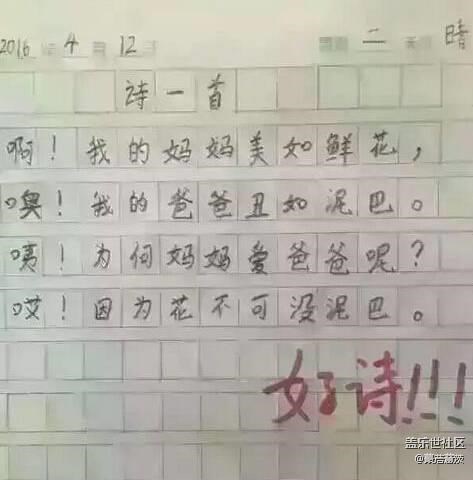 2016 年 4 月 12 日 星期 二 天气 晴
诗一首
啊！我的妈妈美如鲜花，
噢！我的爸爸丑如泥巴。
咦！为何妈妈爱爸爸呢？
哎！因为花不可没泥巴。
好诗!!!
盖乐世社区